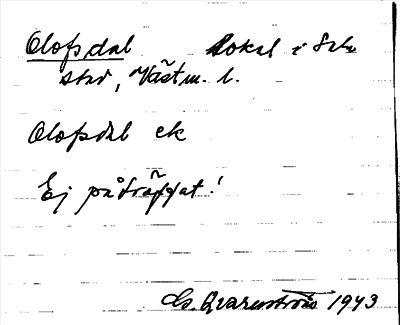 Olofsdal Lokal i Sala
skn, Västm. l.
Olofsdal ek
Ej påträffat!
G. Qvarnström 1943